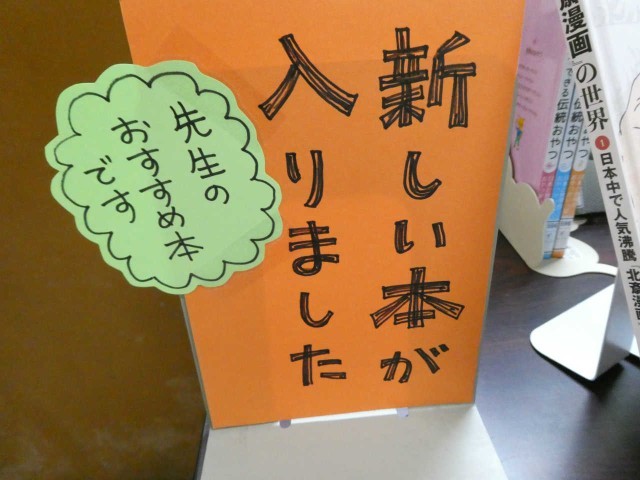 新しい本が
入りました
先生の
おすすめ本
です
漫画』の世界
❶日本中で人気沸騰『北斎漫画
できる伝統おやつ
伝統おやつ
おやつ